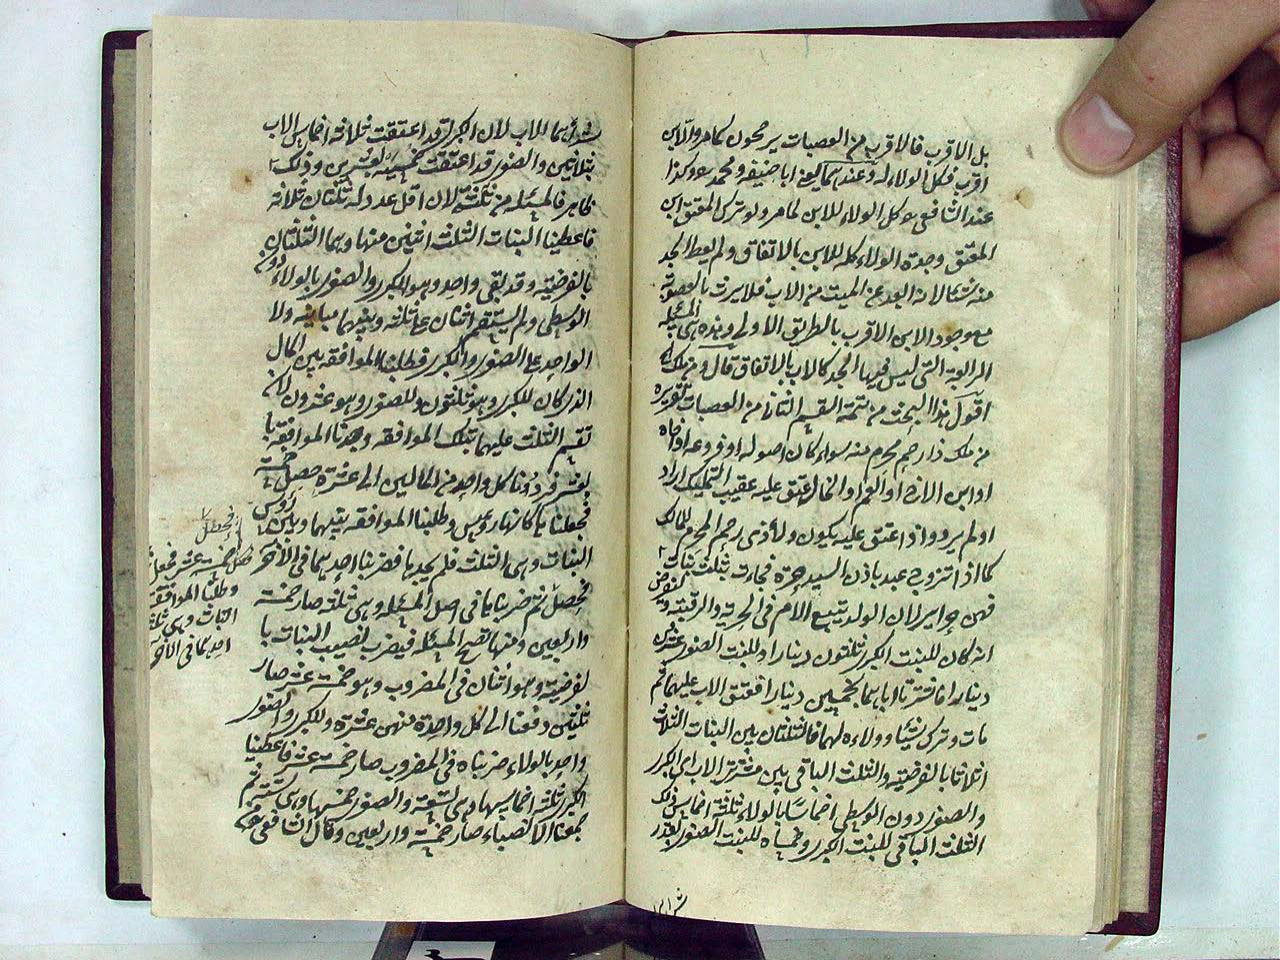 بل الاقرب فالاقرب من العصبات يرجحون كما مر والابن
اقرب فكل الولاء له وعندهما اى عند ابا حنيفه ومحمد رح وكذا
عند الشافعى رح كل الولاء للابن لما مر ولو ترك المعتق ابن
المعتق وجده الولاء كله للابن بالاتفاق ولم يعط الجد
منه شئا لانه ابعد عن الميت من الاب فلا يرث بالعصوبة
مع وجود الابن الاقرب بالطريق الاولى وهذه هى المسئله
الرابعة التى ليس فيها الجد كالاب بالاتفاق قال ومن ملك الخ
اقول هذا البحث من تتمة القسم الثانى من العصبات تقريره
من ملك ذا رحم محرم منه سواء كان اصوله او فروعه او اخاه
او ابن الاخ او العم او الخال عتق عليه عقيب التملك اراد
او لم يرد واذا عتق عليه يكون ولاء ذى رحم المحرم للمالك
كما اذا تزوج عبد باذن السيد حرة فجاءت بثلث بنات
فهن حراير لان الولد يتبع الام فى الحرية والرقية ونفرض
انه كان للبنت الكبرى ثلثون دينارا وللبنت الصغرى عشرون
دينارا فاشترتا اباهما بخمسين دينارا فعتق الاب عليهما ثم
مات وترك شيئا وولاءه لهما فالثلثان بين البنات الثلاث
اثلاثا بالفرضية والثلث الباقى بين مشترتى الاب اى الكبرى
والصغرى دون الوسطى اخماسا بالولاء ثلثة اخماس ذلك
الثلث الباقى للبنت الكبرى وخمساه للبنت الصغرى بقدر
شرائهما
شرائهما للاب لان الكبرى قد اعتقت ثلاثة اخماس الاب
بثلاثين والصغرى قد اعتقت خمسيه بعشرين وذلك
ظاهر فالمسئله من ثلثة لان اقل عدد له ثلثان ثلاثه
فاعطينا البنات الثلث اثنين منها وهما الثلثان
بالفرضية وقد بقى واحد وهو للكبرى والصغرى بالولاء دون
الوسطى ولم يستقم اثنان على ثلثه وبينهما مباينه ولا
الواحد على الصغرى والكبرى فطلبنا الموافقه بين المال
الذى كان للكبرى وهو ثلثون وللصغرى وهو عشرون
تقسم الثلث عليهما بتلك الموافقه وجدنا الموافقه با
لعشر فرددنا كل واحد من المالين الى عشره حصل خمسة
فجعلناها كانها رؤس وطلبنا الموافقه بينهما وبين رؤس
البنات وهى الثلث فلم يجدها فضربنا احديهما فى الاخر
يحصل ثم ضربناها فى اصل المسئله وهى ثلثة صار خمسة
واربعين ومنها تصح المسئله فيضرب نصيب البنات با
لفرضية وهو اثنان فى المضروب وهو خمسة عشر صار
ثلثين دفعنا الى كل واحدة منهن عشرة وللكبرى والصغرى
واحد بالولاء ضربناه فى المضروب صار خمسة عشر فاعطينا
الكبرى ثلثة اخماسها وهى تسعة والصغرى خمسيها وهى ستة ثم
جمعنا الانصباء صار خمسة واربعين وقال الشافعى رح
يحصل
خمسة عشر فجعل
وطلبنا الموافقة
البنات وهى ثلثة
احديهما فى الاخر